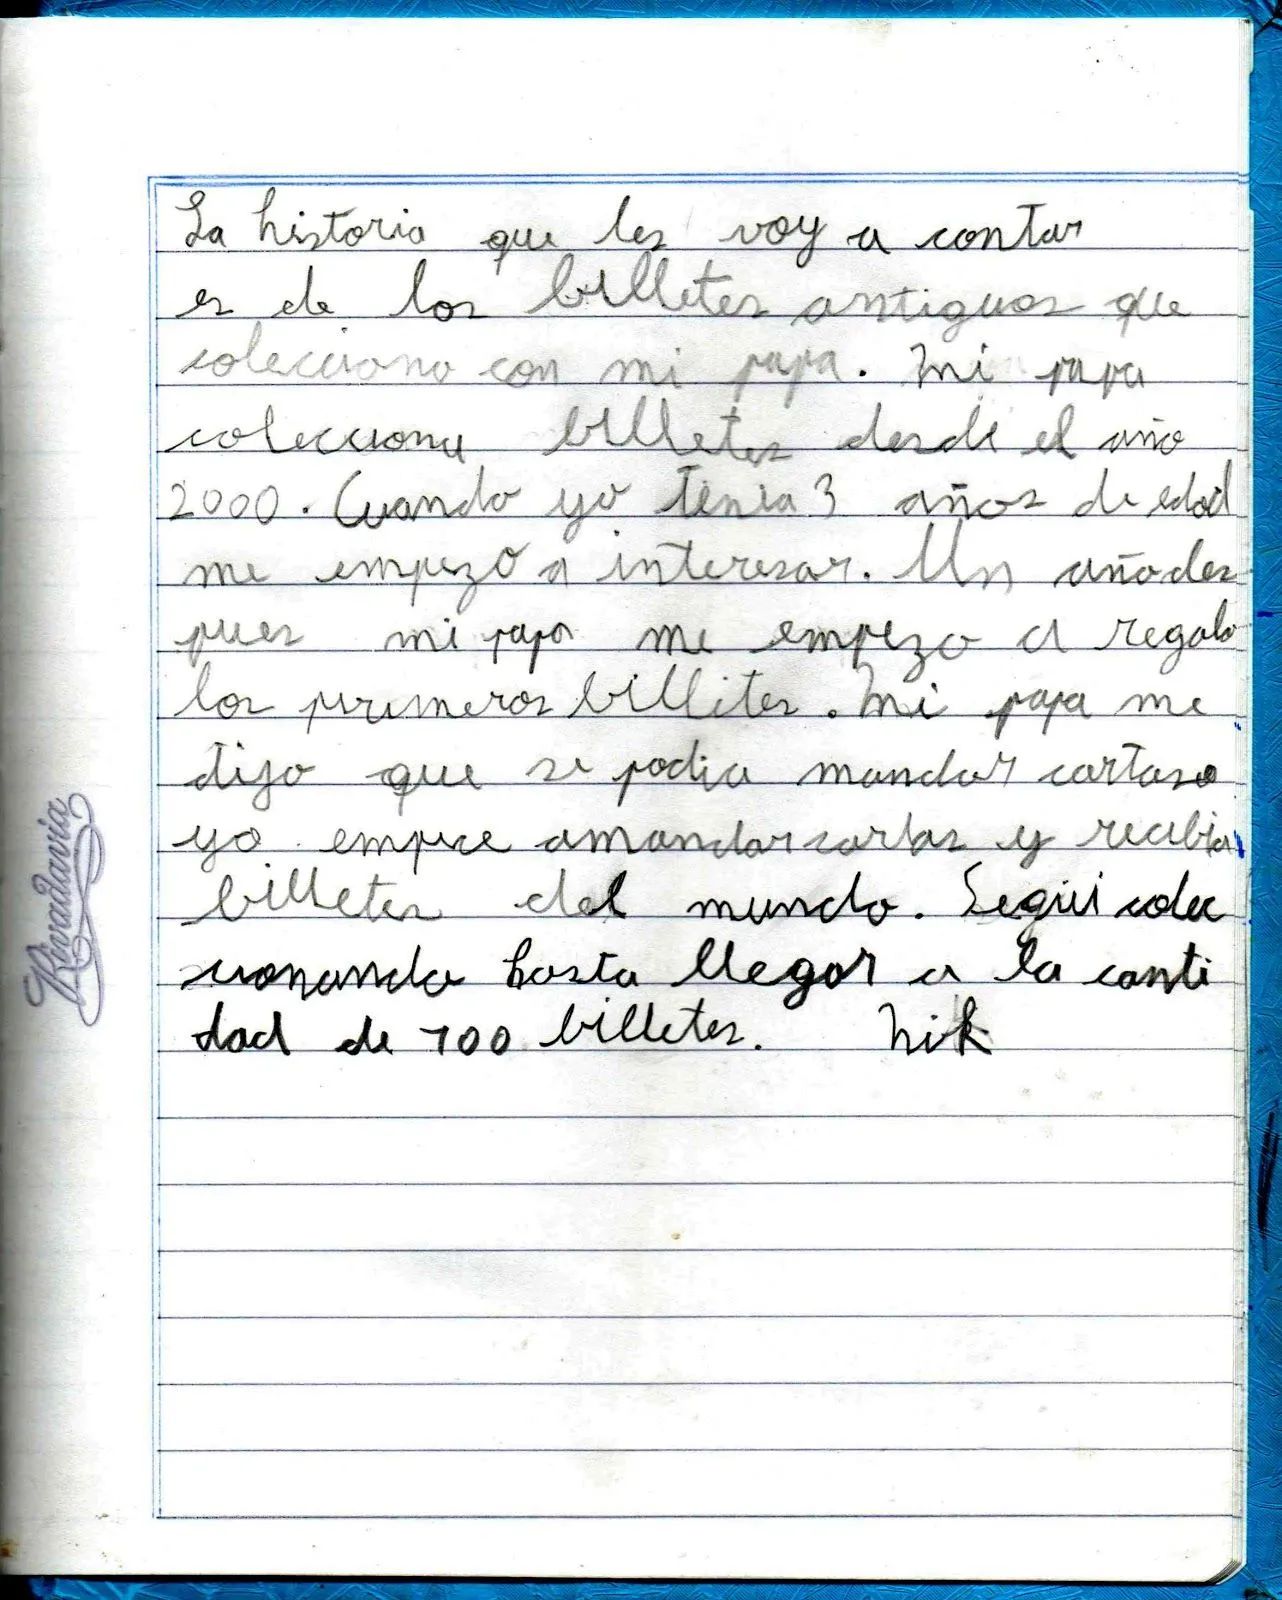 La historia que les voy a contar
es de los billetes antiguos que
colecciono con mi papa. Mi papa
colecciona billetes desde el año
2000. Cuando yo tenia 3 años de edad
me empezó a interesar. Un año des
pues mi papa me empezo a regala
los primeros billites. Mi papa me
dijo que se podia mandar cartas o
yo empece a mandar cartas y recibia
billetes del mundo. Seguí colec
cionando hasta llegar a la canti
dad de 700 billetes. Nik
Rivadavia